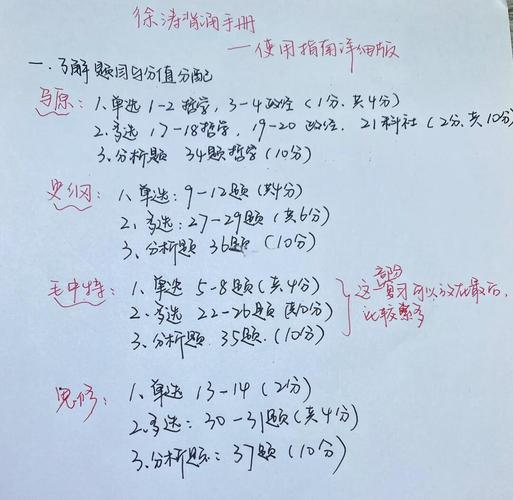 徐涛背诵手册
—使用指南详细版
一.了解题目与分值分配
马原: 1.单选 1-2 哲学, 3-4 政经 (1分, 共4分)
2.多选 17-18哲学, 19-20 政经, 21科社 (2分, 共10分)
3.分析题 34题哲学 (10分)
史纲: 1、单选: 9-12题 (共4分)
2、多选: 27-29题 (共6分)
3、分析题 36题 (10分)
毛中特: 1.单选 5-8题 (共4分)
2.多选 22-26题 共10分)
3.分析题 35题. (10分)
这部分复习可以放在最后,
比较繁多
思修: 1、单选 13-14 (2分)
2.多选: 30-31题 (共4分)
3.分析题: 37题 (10分)